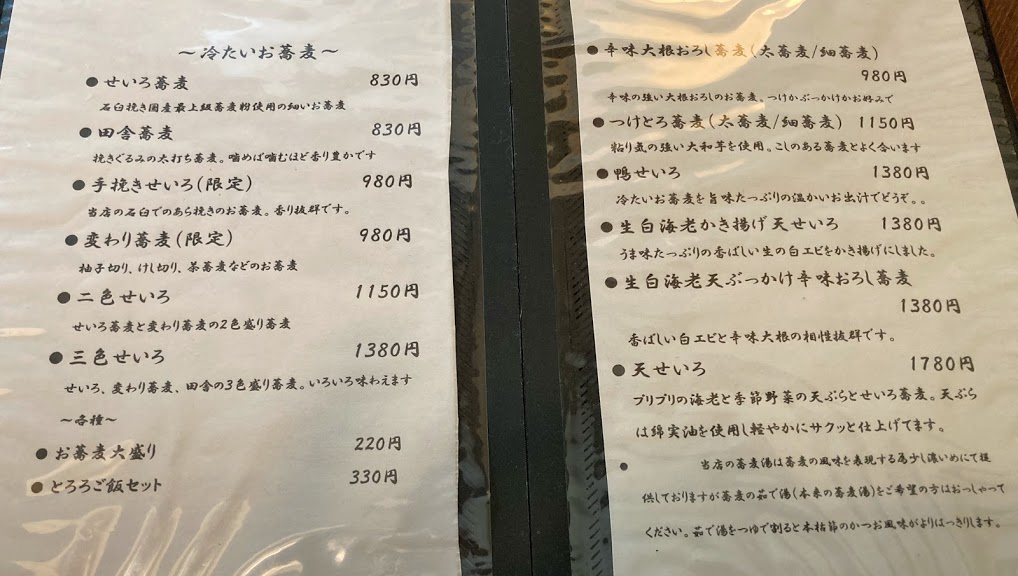 ～冷たいお蕎麦～
●せいろ蕎麦 830円
石臼挽き国産最上級蕎麦粉使用の細いお蕎麦
●田舎蕎麦 830円
挽きぐるみの太打ち蕎麦。噛めば噛むほど香り豊かです
●手挽きせいろ(限定) 980円
当店の石臼でのあら挽きのお蕎麦。香り抜群です。
●変わり蕎麦(限定) 980円
柚子切り、けし切り、茶蕎麦などのお蕎麦
●二色せいろ 1150円
せいろ蕎麦と変わり蕎麦の2色盛り蕎麦
●三色せいろ 1380円
せいろ、変わり蕎麦、田舎の3色盛り蕎麦。いろいろ味わえます
～各種～
●お蕎麦大盛り 220円
●とろろご飯セット 330円
●辛味大根おろし蕎麦(太蕎麦/細蕎麦)
980円
辛味の強い大根おろしのお蕎麦、つけかぶっかけかお好みで
●つけとろ蕎麦(太蕎麦/細蕎麦) 1150円
粘り気の強い大和芋を使用。こしのある蕎麦とよく合います
●鴨せいろ 1380円
冷たいお蕎麦を旨味たっぷりの温かいお出汁でどうぞ。。
●生白海老かき揚げ天せいろ 1380円
うま味たっぷりの香ばしい生の白エビをかき揚げにしました。
●生白海老天ぶっかけ辛味おろし蕎麦
1380円
香ばしい白エビと辛味大根の相性抜群です。
●天せいろ 1780円
プリプリの海老と季節野菜の天ぷらとせいろ蕎麦。天ぷら
は綿実油を使用し軽やかにサクッと仕上げてます。
● 当店の蕎麦湯は蕎麦の風味を表現する為少し濃いめにて提
供しておりますが蕎麦の茹で湯(本来の蕎麦湯)をご希望の方はおっしゃって
ください。茹で湯をつゆで割ると本枯節のかつお風味がよりはっきりします。